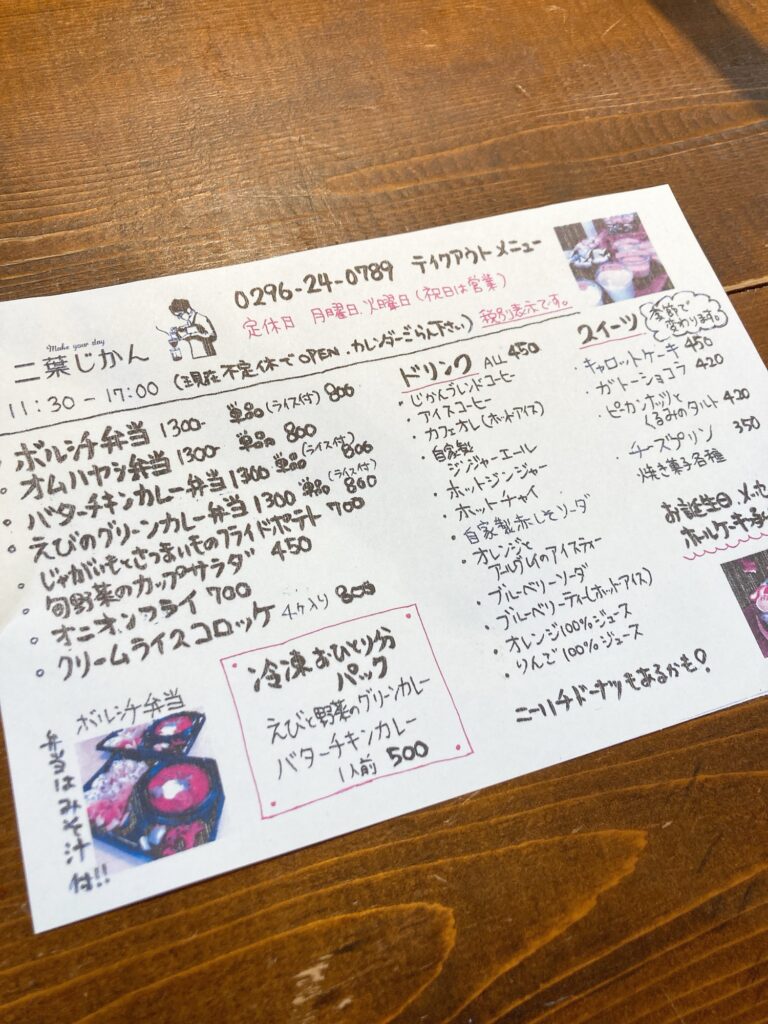 0296-24-0789 テイクアウトメニュー
定休日 月曜日.火曜日(祝日は営業)
税別表示です。
Make your day
二葉じかん
11:30-17:00 (現在不定休でOPEN.カレンダーごらん下さい)
・ボルシチ弁当 1300- 単品(ライス付) 800
・オムハヤシ弁当 1300- 単品 800
・バターチキンカレー弁当 1300 単品(ライス付) 800
・えびのグリーンカレー弁当 1300 単品(ライス付) 800
・じゃがいもとさつまいものフライドポテト 700
・旬野菜のカップサラダ 450
・オニオンフライ 700
・クリームライスコロッケ 4ヶ入り 800
ボルシチ弁当
弁当はみそ汁付!!
冷凍おひとり分
パック
えびと野菜のグリーンカレー
バターチキンカレー
1人前 500
ドリンク ALL 450
・じかんブレンドコーヒー
・アイスコーヒー
・カフェオレ(ホットアイス)
・自家製
ジンジャーエール
・ホットジンジャー
・ホットチャイ
・自家製赤しそソーダ
・オレンジと
アールグレイのアイスティー
・ブルーベリーソーダ
・ブルーベリーティー(ホットアイス)
・オレンジ100%ジュース
・りんご100%ジュース
ニーハチドーナツもあるかも!
スイーツ
季節で
変わります。
・キャロットケーキ 450
・ガトーショコラ 420
・ピーカンナッツと
くるみのタルト 420
・チーズプリン 350
焼き菓子各種
お誕生日
ホールケーキ承